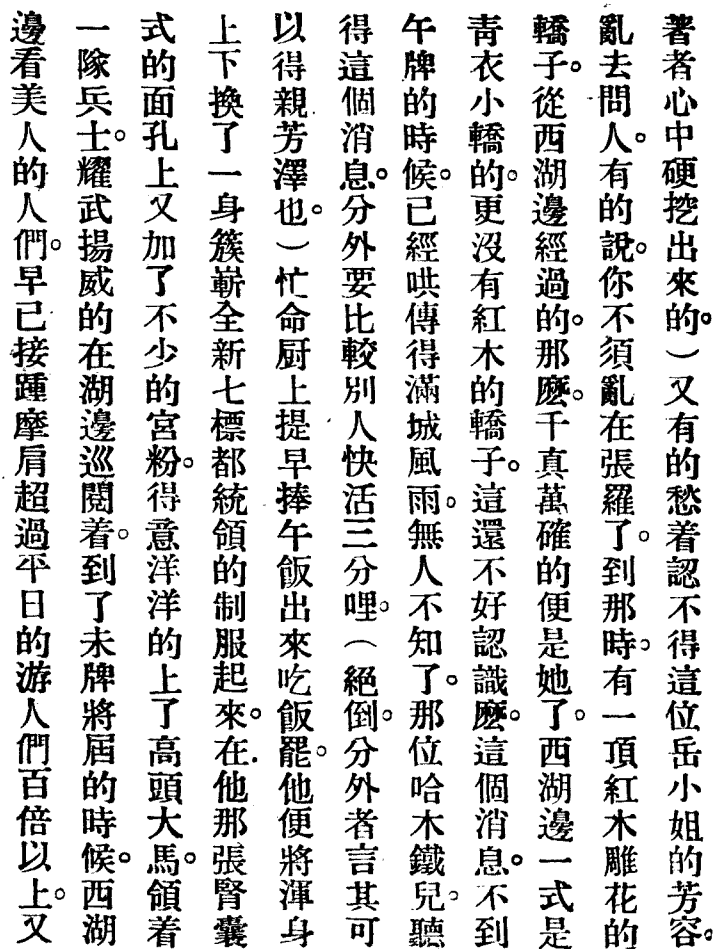 著者心中硬挖出來的。）又有的愁着認不得這位岳小姐的芳容。
亂去問人。有的說。你不須亂在張羅了。到那時。有一頂紅木雕花的
轎子。從西湖邊經過的。那麽。千真萬確的便是她了。西湖邊一式是
靑衣小轎的。更沒有紅木的轎子。這還不好認識麽。這個消息。不到
午牌的時候。已經哄傳得滿城風雨。無人不知了。那位哈木鐵兒。聽
得這個消息。分外要比較別人快活三分哩。（絕倒。分外者言其可
以得親芳澤也。）忙命厨上提早捧午飯出來吃飯罷。他便將渾身
上下換了一身簇嶄全新七標都統領的制服起來。在他那張腎囊
式的面孔上又加了不少的宮粉。得意洋洋的上了高頭大馬。領着
一隊兵士。耀武揚威的在湖邊巡閱着。到了未牌將屆的時候。西湖
邊看美人的人們。早已接踵摩肩超過平日的游人們百倍以上。又